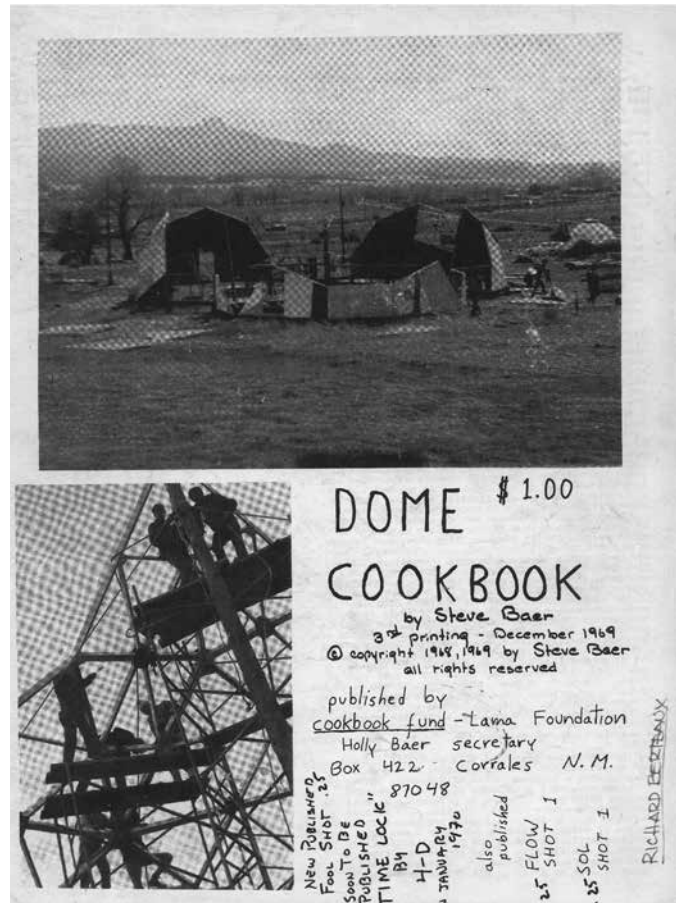 DOME $ 1.00
COOKBOOK
by Steve Baer
3rd printing - December 1969
© copyright 1968, 1969 by Steve Baer
all rights reserved
published by
cookbook fund - Lama Foundation
Holly Baer secretary
Box 422 Corrales N.M.
87048
NEW PUBLISHED
FOOL SHOT .25
SOON TO BE
PUBLISHED
"TIME LOCK"
BY
4-D
JANUARY
1970
also
published
FLOW
SHOT 1
.25
SOL
SHOT 1
.25
RICHARD